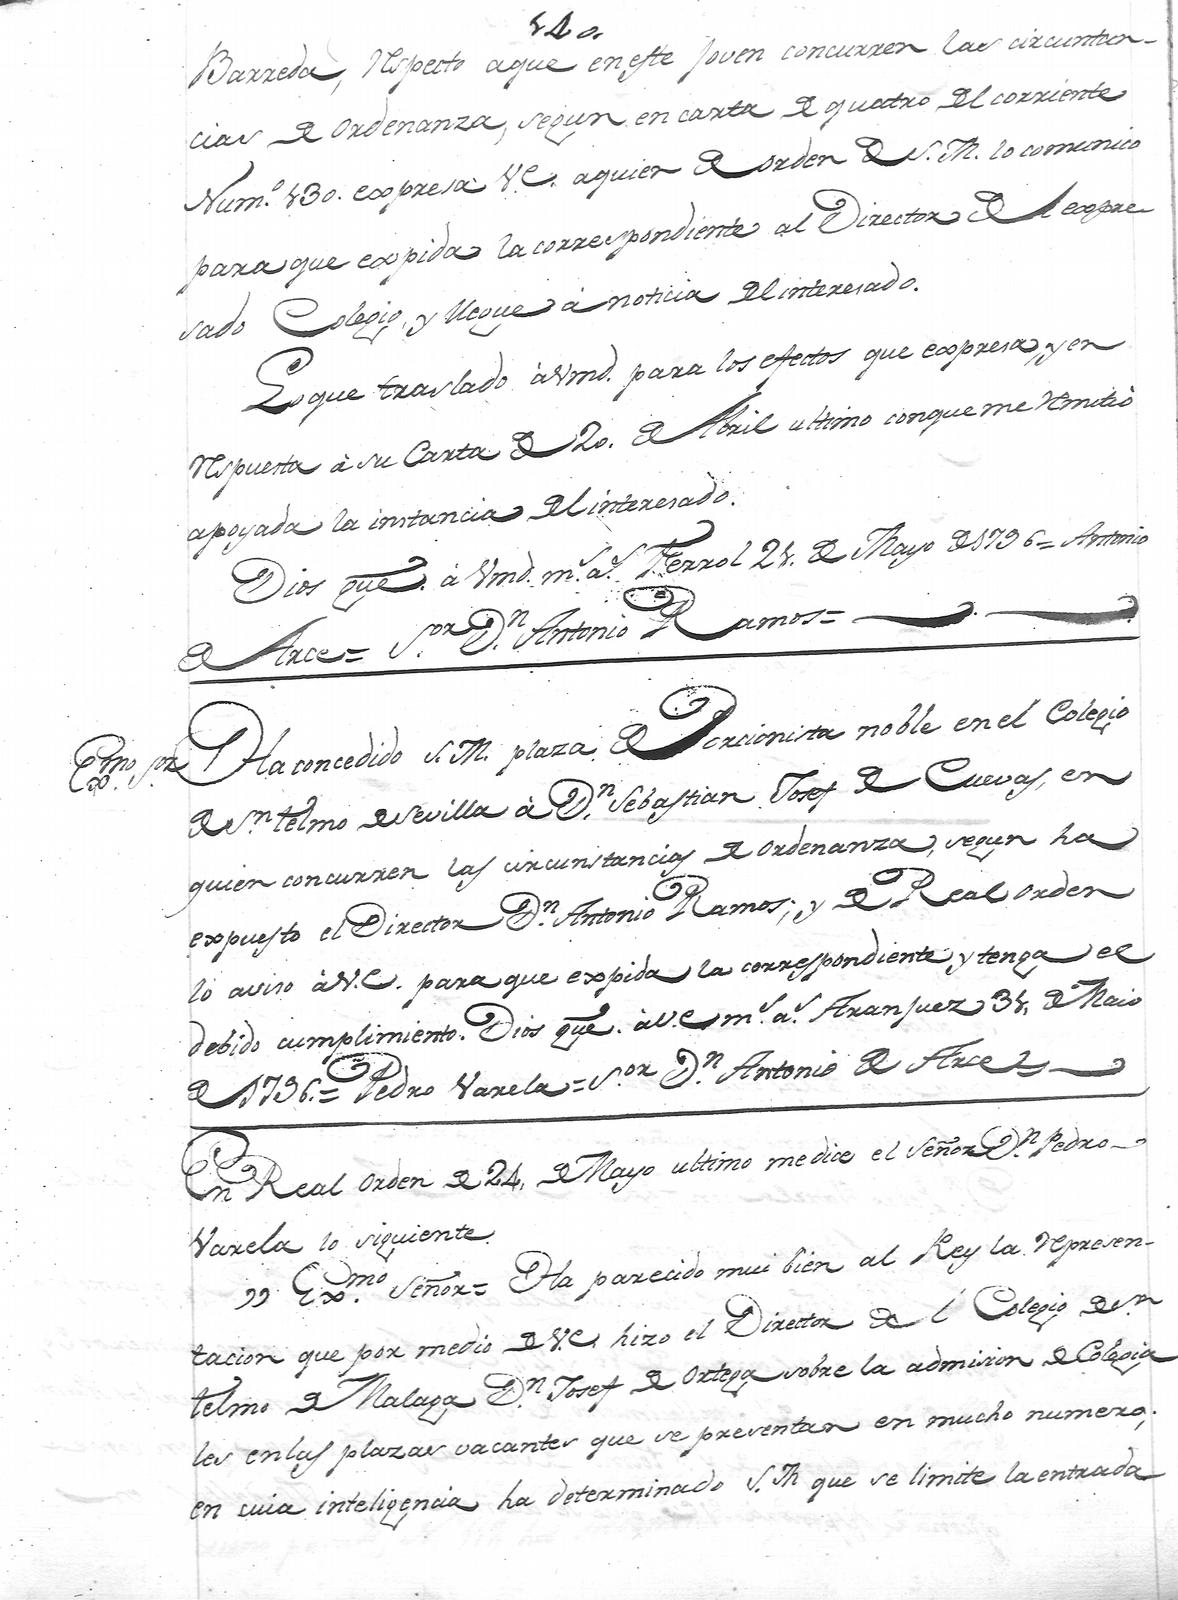 140.
Barreda, respecto aque en este Joven concurren las circuntan-
cias de Ordenanza, segun en carta de quatro del corriente
Num.º 130. expresa V.E. aquien de orden de S.M. lo comunico
para que expida la correspondiente al Director del expre-
sado Colegio, y llegue à noticia del interesado.
Lo que traslado àVmd. para los efectos que expresa, y en
respuesta à su Carta de 20. de Abril ultimo conque me remitiò
apoyada la instancia del interesado.
Dios gue. à Vmd. m.s a.s Ferrol 21. de Mayo de 1796= Antonio
de Arce= S.or D.n Antonio Ramos=
Exmo. Sor.
Ha concedido S.M. plaza de Porcionista noble en el Colegio
de Sn telmo de Sevilla à D.n Sebastian Josef de Cuevas, en
quien concurren las circunstancias de Ordenanza, segun ha
expuesto el Director D.n Antonio Ramos; y de Real orden
lo aviso àV.E. para que expida la correspondiente y tenga el
debido cumplimiento. Dios gue. àV.E. m.s a.s Aranjuez 31. de Maio
de 1796.= Pedro Varela= S.or D.n Antonio de Arce=
En Real Orden de 24. de Mayo ultimo medice el Señor D.n Pedro
Varela lo siguiente
" Exmo. Señor= Ha parecido mui bien al Rey la represen-
tacion que por medio de V.E. hizo el Director del Colegio de Sn
telmo de Malaga D.n Josef de Ortega sobre la admision de Colegia
les enlas plazas vacantes que se presentan en mucho numero;
en cuia inteligencia ha determinado S.M que se limite la entrada